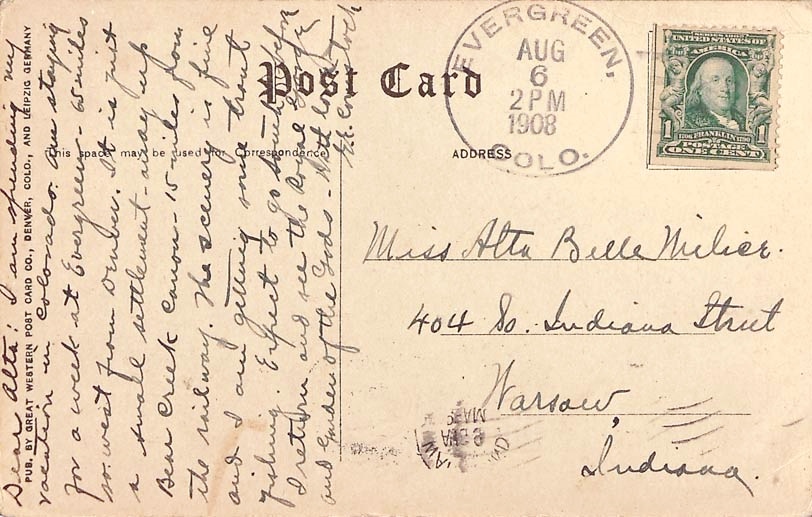 Post Card
This space may be used for Correspondence
ADDRESS
EVERGREEN,
AUG
6
2 PM
1908
COLO.
SERIES 1902
UNITED STATES OF
AMERICA
1 FRANKLIN 1
POSTAGE
ONE CENT
Miss Alta Belle
404 So. Indiana Street
Warsaw,
Indiana.
PUB. BY GREAT WESTERN POST CARD CO., DENVER, COLO., AND LEIPZIG GERMANY
Dear Alta: I am spending my
vacation in Colorado. am staying
for a week at Evergreen - 65 miles
so. west from Denver. It is just
a small settlement - away up
Bear Creek Canon - 15 miles from
the railway. The scenery is fine
and I am getting some trout
fishing. Expect to go south before
I return and see the Royal Gorge
and Garden of the Gods - With love
Comstock